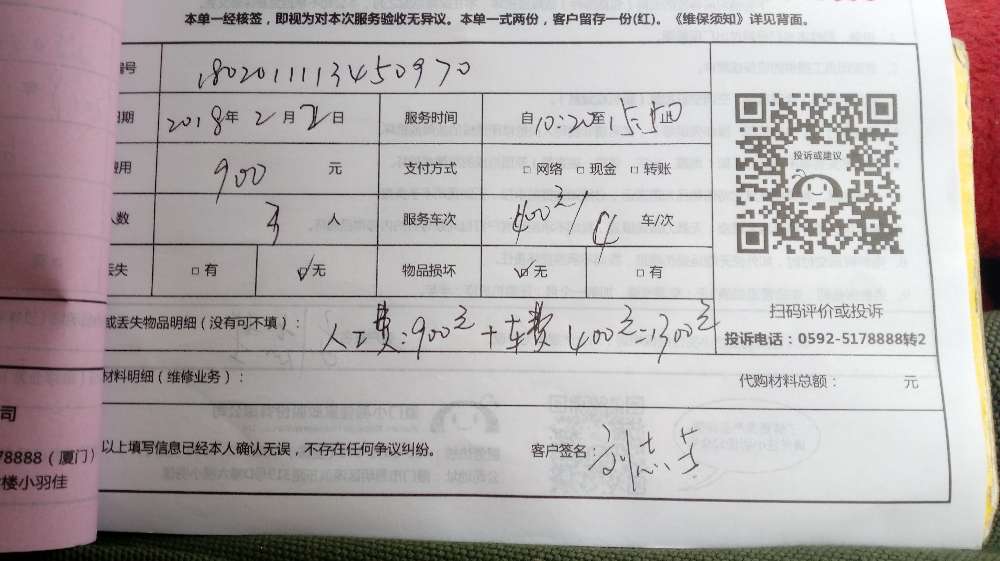 本单一经核签，即视为对本次服务验收无异议。本单一式两份，客户留存一份(红)。《维保须知》详见背面。
编号 1802011113450970
日期 2018年2月2日 服务时间 自10:20至15:50
费用 900 元 支付方式 □网络 □现金 □转账
人数 3 人 服务车次 400元/ 车/次
丢失 □有 ☑无 物品损坏 ☑无 □有
投诉或建议
扫码评价或投诉
投诉电话：0592-5178888转2
或丢失物品明细（没有可不填）：
人工费:900元+车费400元=1300元
材料明细（维修业务）： 代购材料总额： 元
以上填写信息已经本人确认无误，不存在任何争议纠纷。 客户签名：
司
78888（厦门）
楼小羽佳